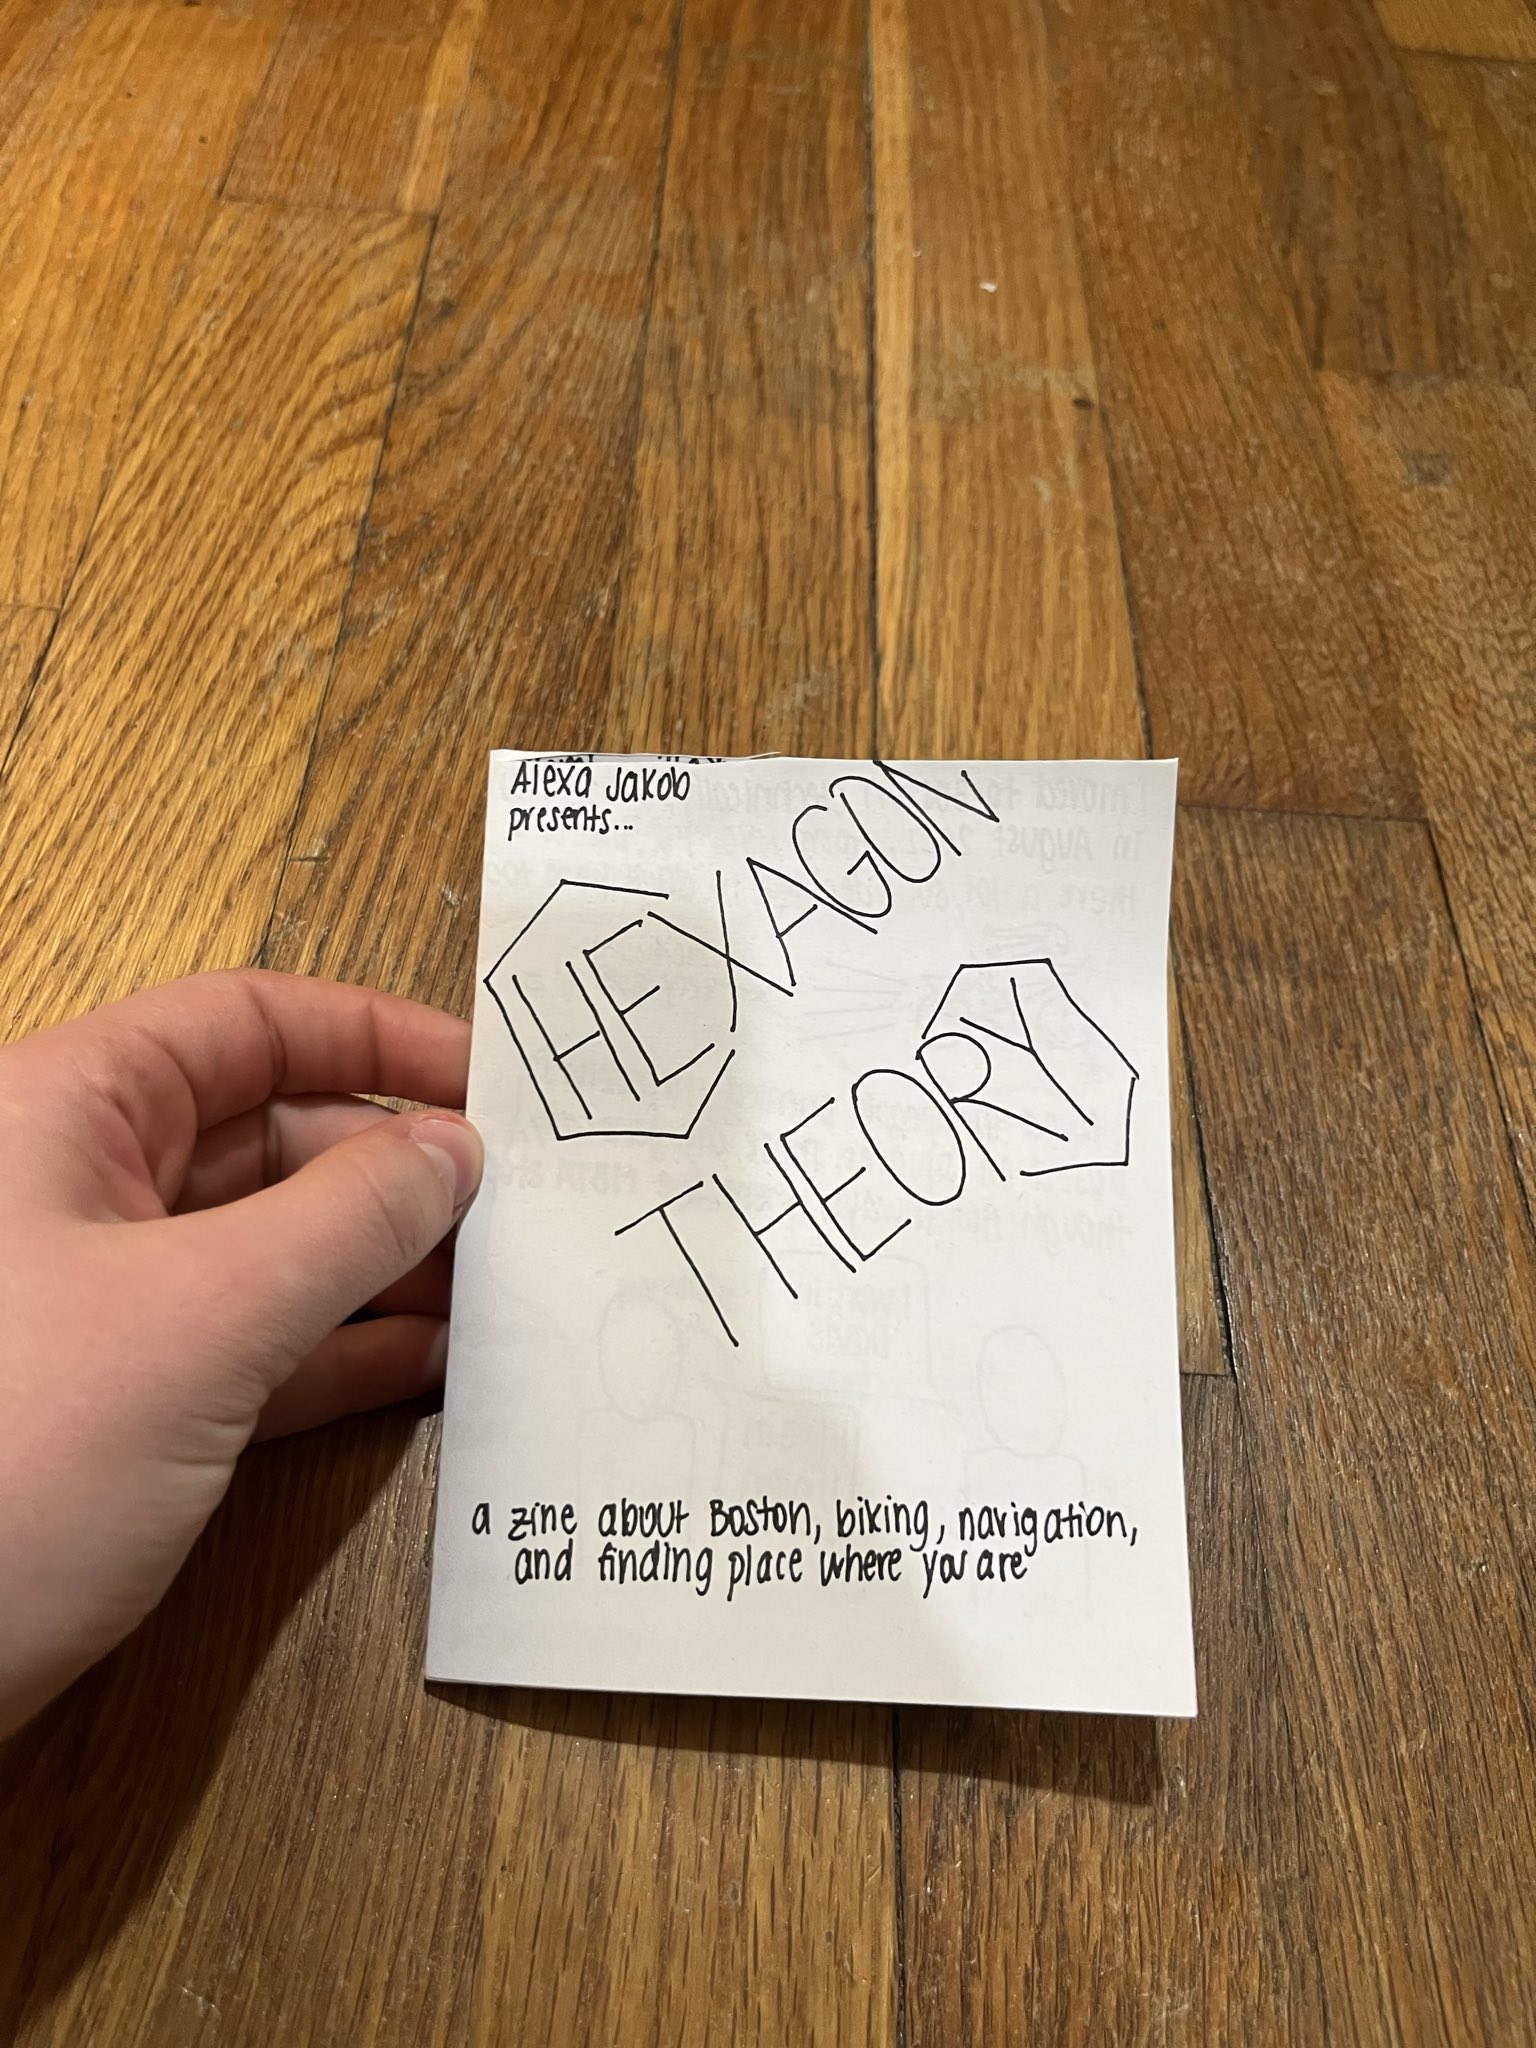 Alexa Jakob
presents...
HEXAGON
THEORY
a zine about Boston, biking, navigation,
and finding place where you are